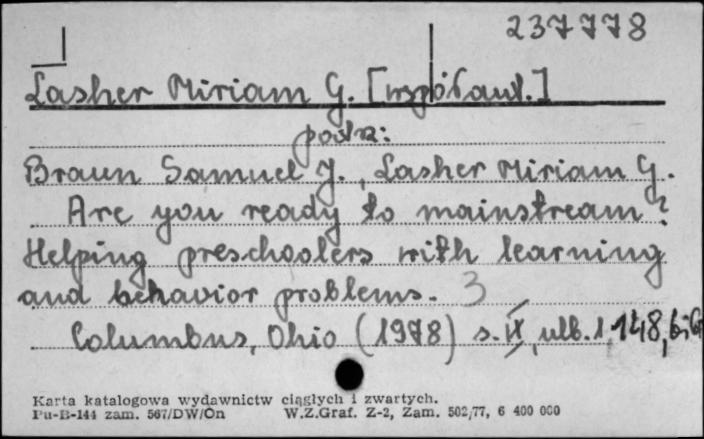 237778
Lasher Miriam G. [współaut.]
podz:
Braun Samuel J., Lasher Miriam G.
Are you ready to mainstream?
Helping preschoolers with learning
and behavior problems. 3
Columbus, Ohio (1978) s. IX, ulb. 1, 148,
Karta katalogowa wydawnictw ciągłych i zwartych.
Pu-B-144 zam. 567/DW/On W.Z.Graf. Z-2, Zam. 502/77, 6 400 000